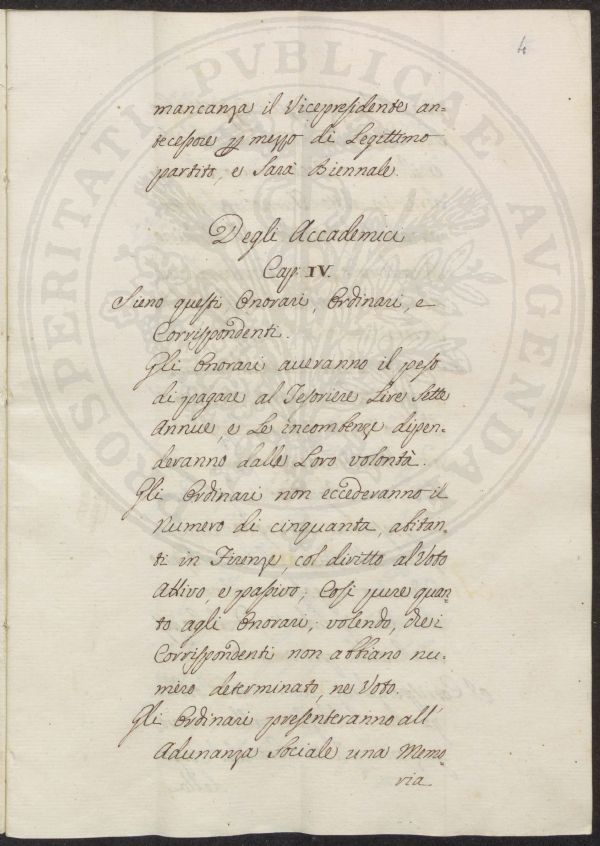 4
PROSPERITATI PVBLICAE AVGENDAE
mancanza il Vicepresidente an=
tecessore per mezzo di Legittimo
partito, e Sarà Biennale.
Degli Accademici
Cap. IV.
Sieno questi Onorari, Ordinari, e
Corrispondenti.
Gli Onorari averanno il peso
di pagare al Tesoriere Lire Sette
Annue, e Le incombenze dipen=
deranno dalle Loro volontà.
Gli Ordinari non eccederanno il
Numero di cinquanta, abitan=
ti in Firenze, col diritto al Voto
Attivo, e passivo; Così pure quan=
to agli Onorari; volendo, che i
Corrispondenti non abbiano nu=
mero determinato, nè Voto.
Gli Ordinari presenteranno all'
Adunanza Sociale una Memo=
ria